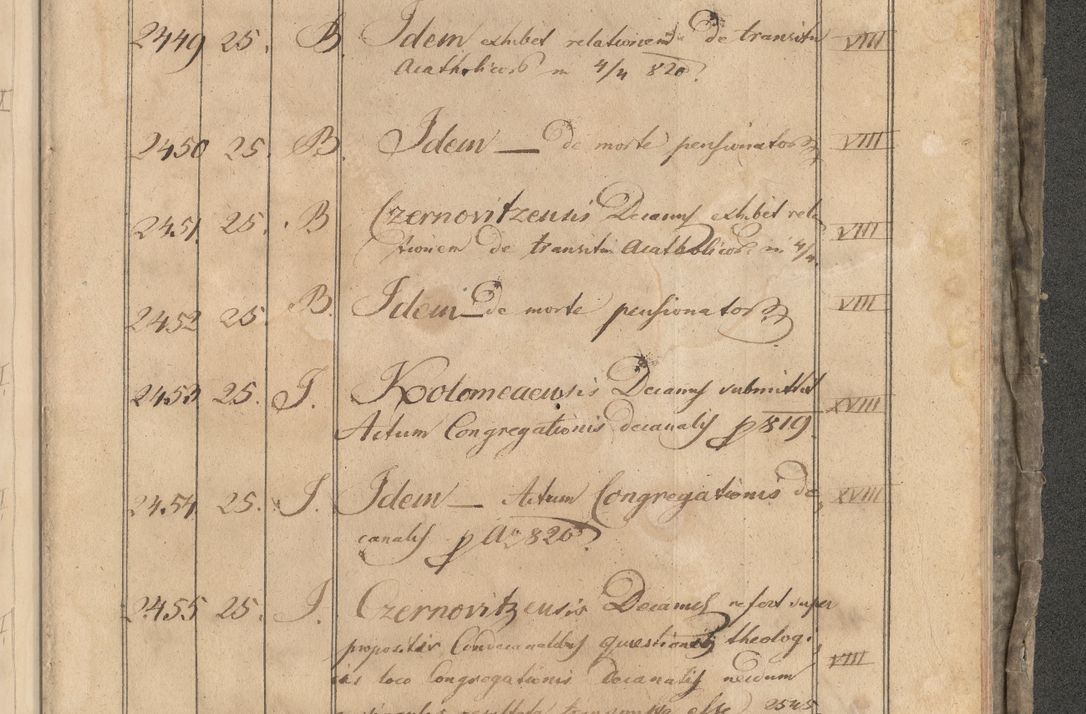 2449 25. B. Idem exhibet relationem de transitu VIII
Acatholicos in 4/4 820.
2450 25. B. Idem — de morte pensionator VIII
2451. 25. B Czernovitzensis Decanus exhibet rela VIII
tionem de transitu Acatholicos in 4/4.
2452 25. B. Idem — de morte pensionator VIII
2453 25. J. Kolomeaensis Decanus submittit XVIII
Actum Congregationis decanalis p 819.
2454 25. J. Idem — Actum Congregationis de XVIII
canalis p Ao 820.
2455 25. J. Czernovitzensis Decanus refert super
propositis Condecanalibus questionib theolog. VIII
loco Congregationis Decanalis